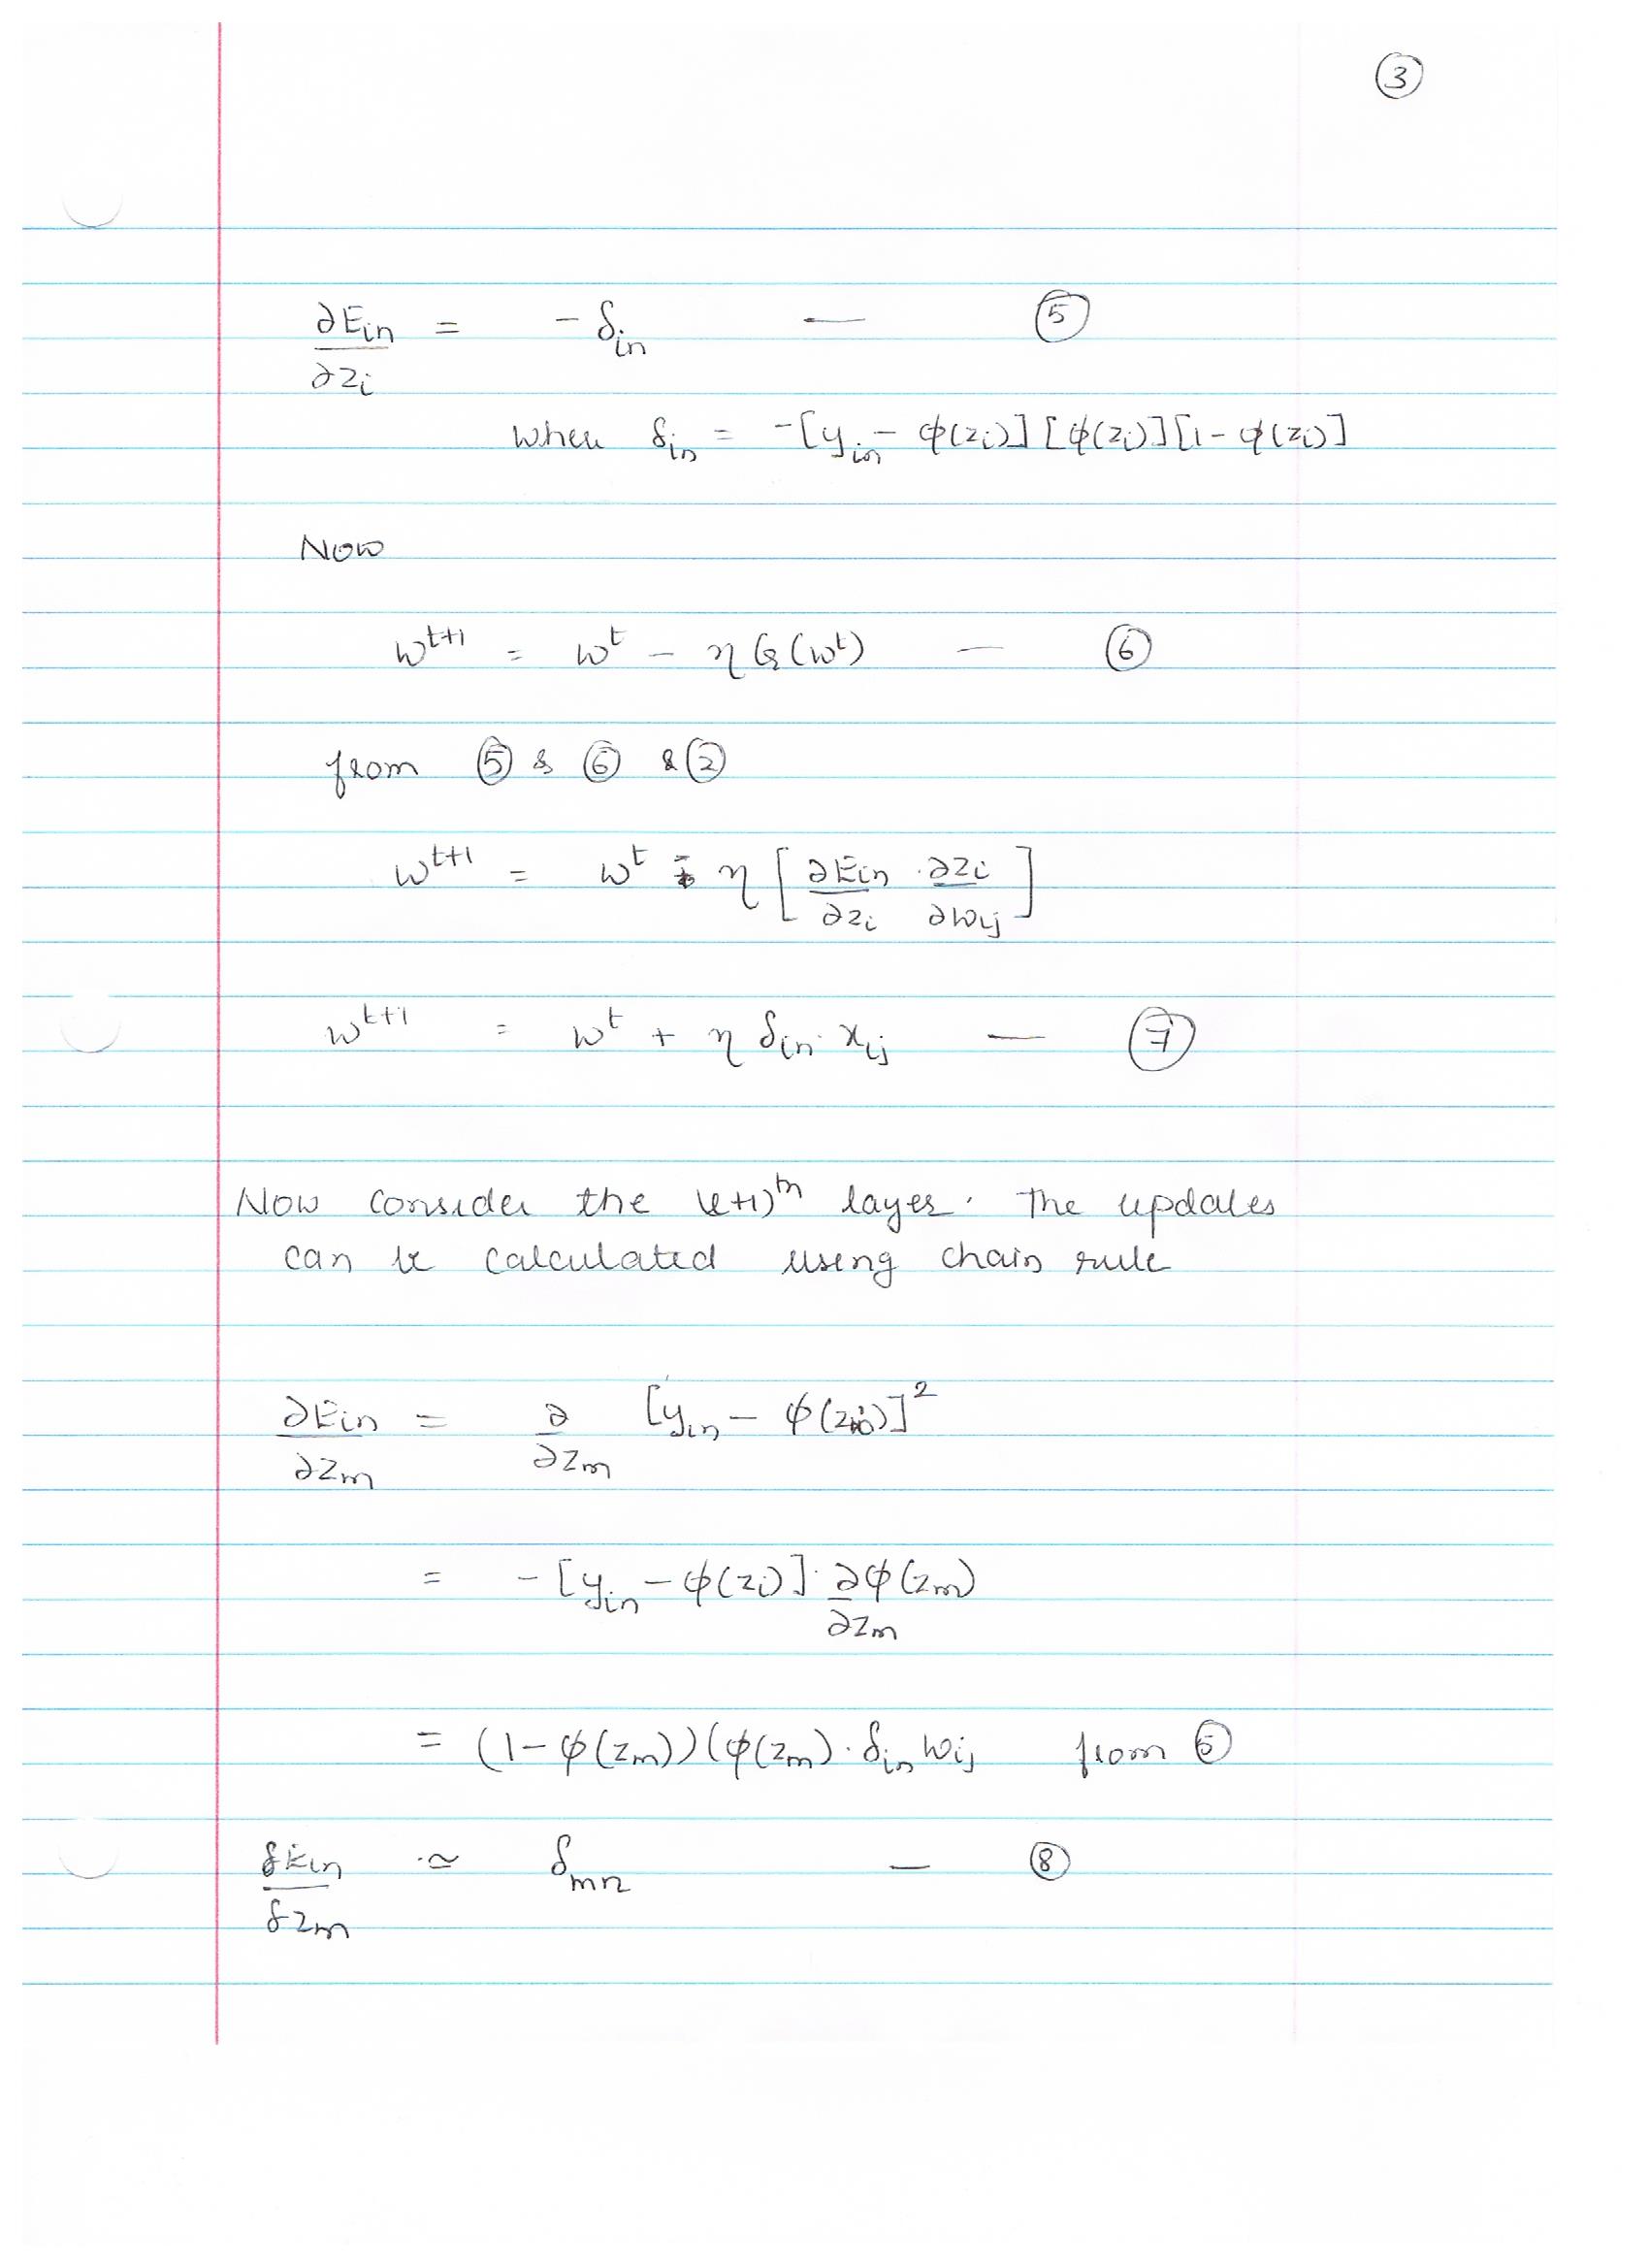 ③
∂Ein/∂zi = - δin — ⑤
when δin = -[yin - φ(zi)] [φ(zi)] [1 - φ(zi)]
Now
w^t+1 = w^t - η G(w^t) — ⑥
from ⑤ & ⑥ & ②
w^t+1 = w^t - η [∂Ein/∂zi · ∂zi/∂wij]
w^t+1 = w^t + η δin · xij — ⑦
Now consider the (l+1)^th layer. The updates
can be calculated using chain rule
∂Ein/∂zm = ∂/∂zm [yin - φ(zi)]^2
= -[yin - φ(zi)] · ∂φ(zm)/∂zm
= (1 - φ(zm))(φ(zm) · δin wij from ⑤
δEin/δzm ≃ δmn — ⑧